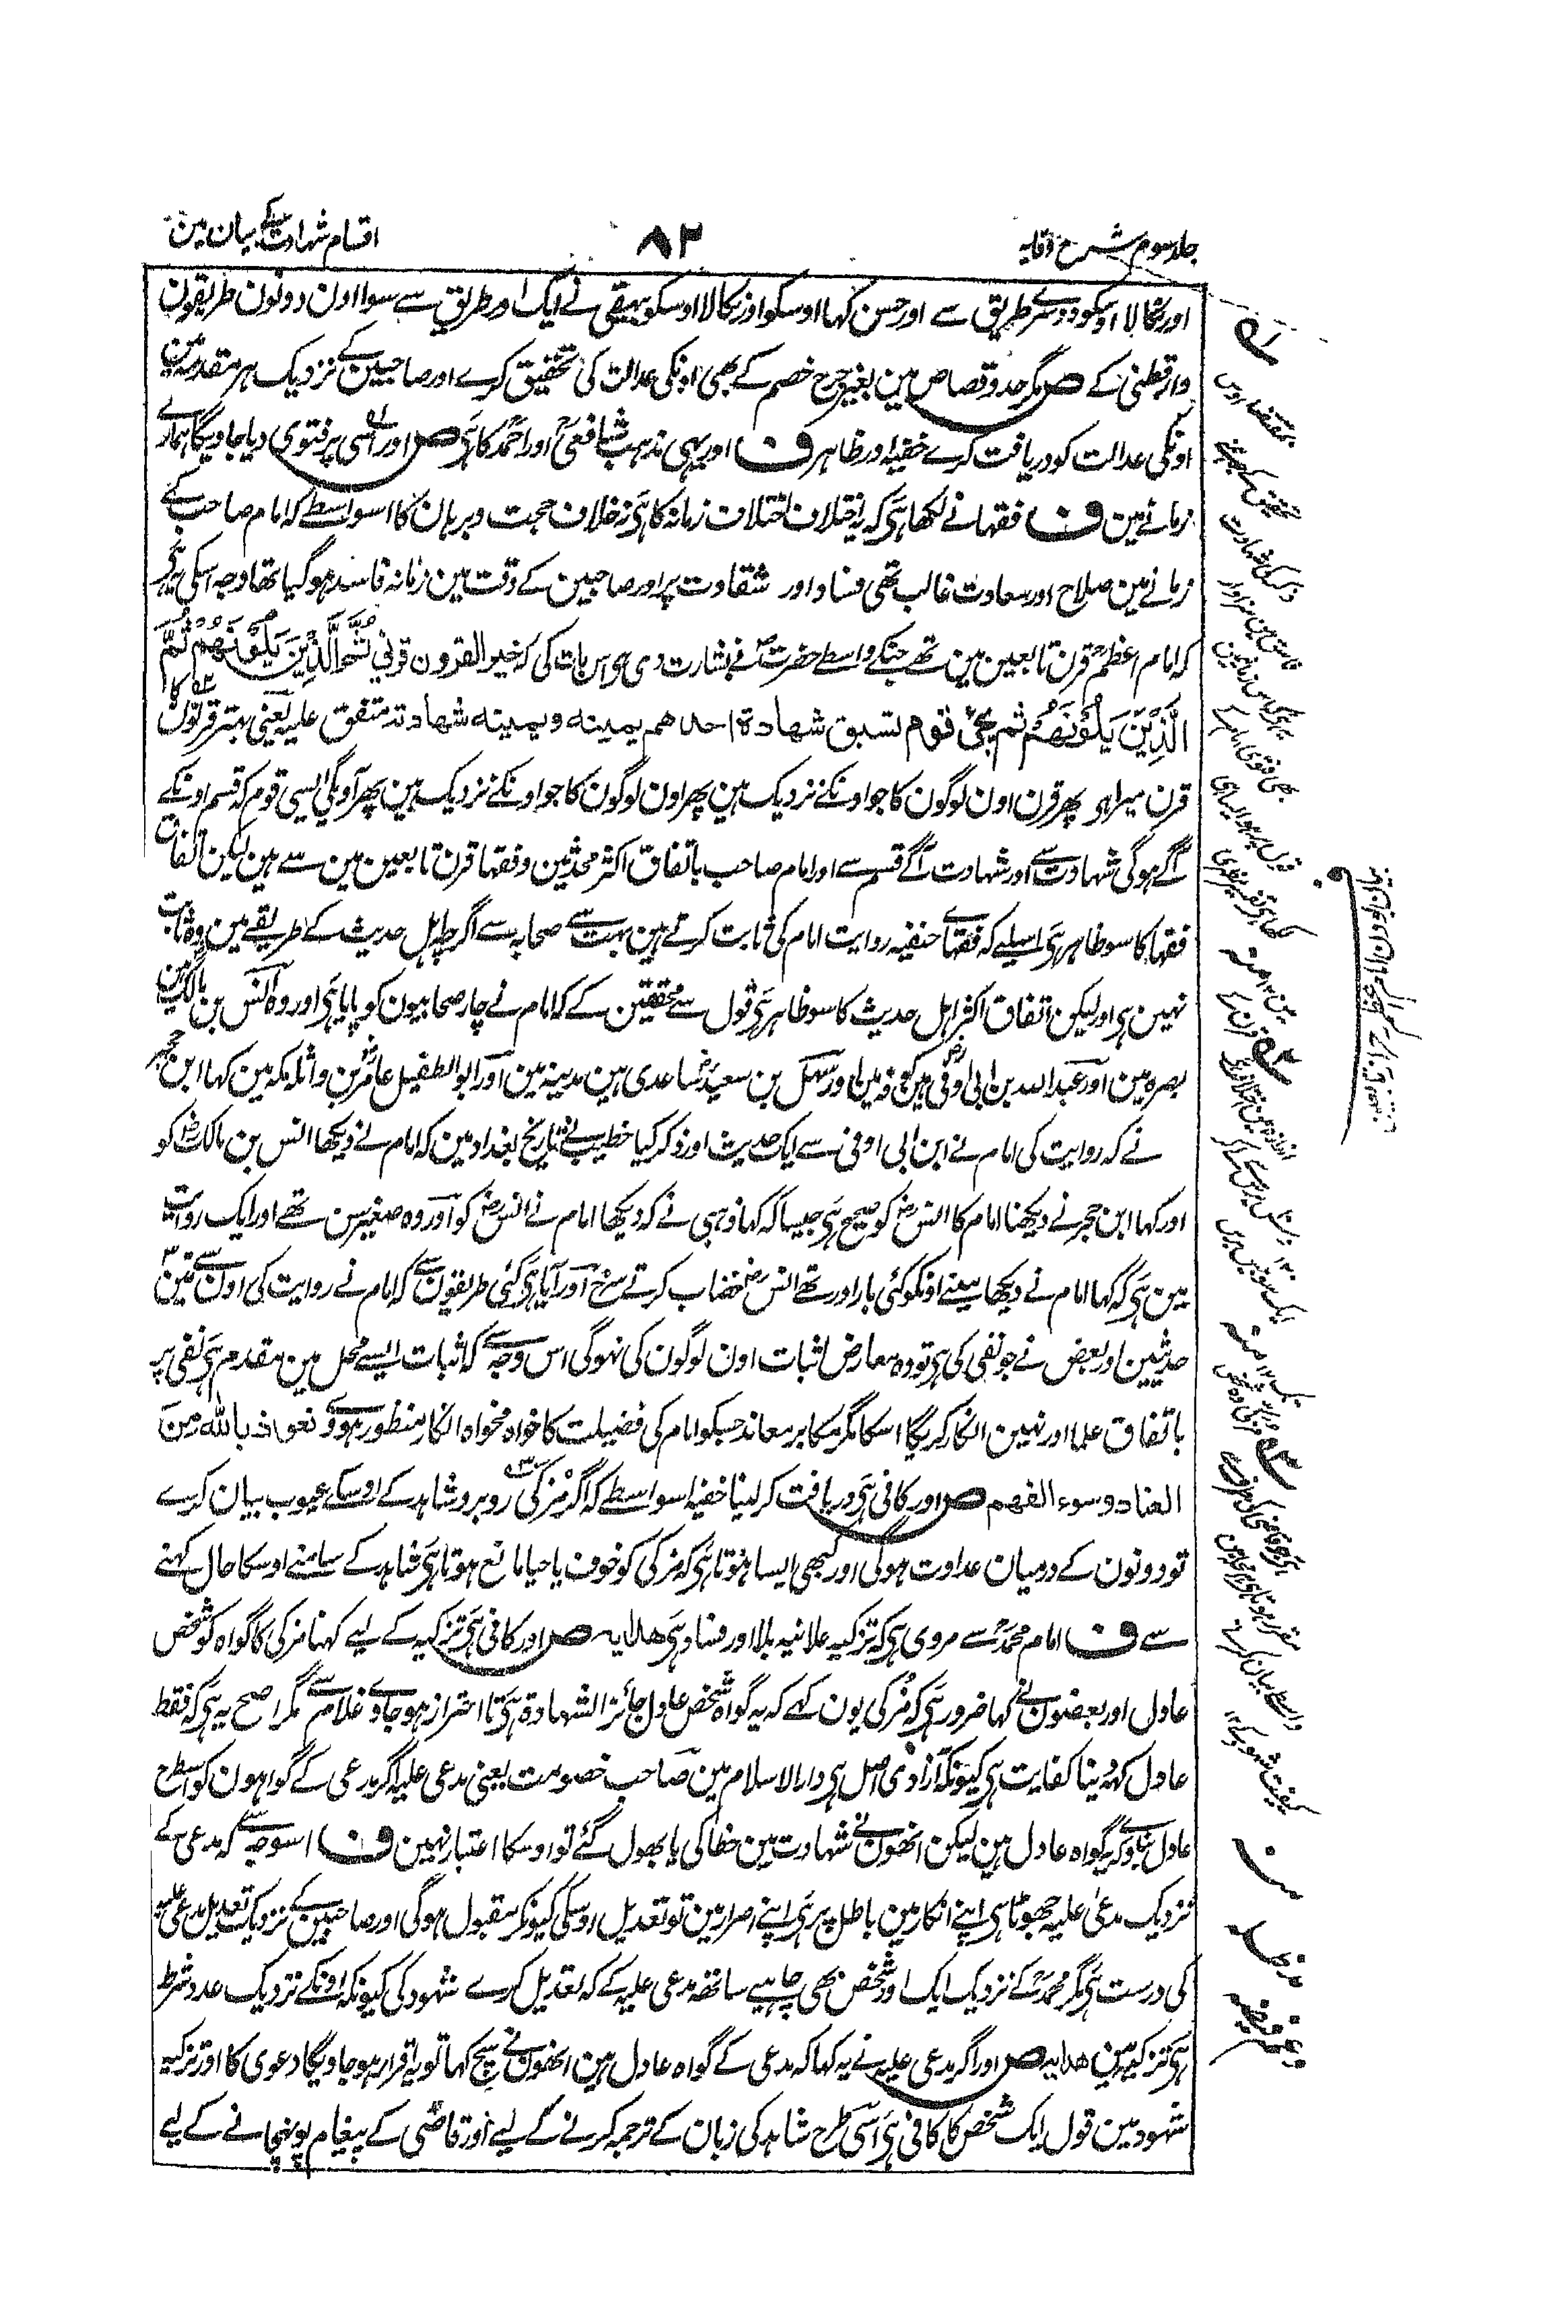 جلد سوم شرح وقایہ
۸۲
اقسام شہادت کے بیان مین
اور نکالا اوسکو دوسرے طریق سے اور حسن کہا اوسکو اور نکالا اوسکو بیہقی نے ایک اور طریق سے سوا اون دونون طریقون
دارقطنی کے ص مگر حد و قصاص مین بغیر جرح خصم کے بھی اونکی عدالت کی تحقیق کرے اور صاحبین کے نزدیک ہر مقدمہ مین
اونکی عدالت کو دریافت کرے خفیہ اور ظاہر ف اور یہی مذہب شافعیؒ اور احمدؒ کا ہی ص اور اسی پر فتوی دیا جاویگا ہمارے
زمانے مین ف فقہا نے لکھا ہی کہ یہ اختلاف اختلاف زمانہ کا ہی نہ خلاف حجت و برہان کا اسواسطے کہ امام صاحب کے
زمانے مین صلاح اور سعادت غالب تھی فساد اور شقاوت پر اور صاحبین کے وقت مین زمانہ فاسد ہوگیا تھا وجہ اسکی یہ ہی
کہ امام اعظمؒ قرن تابعین مین تھے جنکے واسطے حضرتؐ نے بشارت دی ہی اس بات کی کہ خیر القرون قرنی ثُمَّ الَّذِیْنَ یَلُوْنَهُمْ ثُمَّ
الَّذِیْنَ یَلُوْنَهُمْ ثم یجئ قوم تسبق شهادة احدهم یمینه ویمینه شهادته متفق علیہ یعنی بہتر قرنون کا
قرن میرا ہو پھر قرن اون لوگون کا جو اونکے نزدیک ہین پھر اون لوگون کا جو اونکے نزدیک ہین پھر آوگی ایسی قوم کہ قسم اونکے
آگے ہوگی شہادت سے اور شہادت آگے قسم سے اور امام صاحب باتفاق اکثر محدثین و فقہا قرن تابعین مین سے ہین لیکن اتفاق
فقہا کا سو ظاہر ہی اسیلیے کہ فقہاے حنفیہ روایت امام کی ثابت کرتے ہین بہت سے صحابہ سے اگرچہ اہل حدیث کے طریقے مین وہ ثابت
نہین ہی اور لیکن اتفاق اکثر اہل حدیث کا سو ظاہر ہی قول سے محققین کے کہ امام نے چار صحابیون کو پایا ہی اور وہ انس بن مالک ہین
بصرہ مین اور عبد اللہ بن ابی اوفی ہین کوفہ مین اور سہل بن سعید ساعدی ہین مدینہ مین اور ابو الطفیل عامر بن واثلہ مکہ مین کہا ابن حجر
نے کہ روایت کی امام نے ابن ابی اوفی سے ایک حدیث اور ذکر کیا خطیب نے تاریخ بغداد مین کہ امام نے دیکھا انس بن مالک کو
اور کہا ابن حجر نے دیکھنا امام کا انسؓ کو صحیح ہی جیسا کہ کہا ذہبی نے کہ دیکھا امام نے انسؓ کو اور وہ صغیر سن تھے اور ایک روایت
مین ہی کہ کہا امام نے دیکھا مینے اونکو کئی بار اور تھے انسؓ خضاب کرتے سرخ اور آیا ہی کئی طریقون سے کہ امام نے روایت کی اون سے تین
حدیثین اور بعض نے جو نفی کی ہی تو وہ معارض اثبات اون لوگون کی نہوگی اس وجہ سے کہ اثبات ایسے محل مین مقدم ہی نفی پر
باتفاق علما اور نہین انکار کریگا اسکا مگر مکابر معاند جسکو امام کی فضیلت کا خواہ مخواہ انکار منظور ہووے ونعوذ باللہ من
العناد وسوء الفهم ص اور کافی ہی دریافت کرلینا خفیہ اسواسطے کہ اگر مزکی روبرو شاہد کے اوسکے عیوب بیان کرے
تو دونون کے درمیان عداوت ہوگی اور کبھی ایسا ہوتا ہی کہ مزکی کو خوف یا حیا مانع ہوتا ہی شاہد کے سامنے اوسکا حال کہنے
سے ف امام محمدؒ سے مروی ہی کہ تزکیہ علانیہ بلا اور فساد ہی ھدایہ ص اور کافی ہی تزکیہ کے لیے کہنا مزکی کا گواہ کو شخص
عادل اور بعضون نے کہا ضرور ہی کہ مزکی یون کہے کہ یہ گواہ شخص عادل جائز الشهادة ہی تا احتراز ہوجاوے غلام سے مگر اصح یہ ہی کہ فقط
عادل کہدینا کفایت ہی کیونکہ آزادی اصل ہی دار الاسلام مین صاحب خصومت یعنی مدعی علیہ اگر مدعی کے گواہون کو اسطرح
عادل بناوے کہ یہ گواہ عادل ہین لیکن انھون نے شہادت مین خطا کی یا بھول گئے تو اوسکا اعتبار نہین ف اسوجہ سے کہ مدعی کے
نزدیک مدعیٰ علیہ جھوٹا ہی اپنے انکار مین باطل پر ہی اپنے اصرار مین تو تعدیل اوسکی کیونکر مقبول ہوگی اور صاحبین کے نزدیک تعدیل مدعی علیہ
کی درست ہی مگر محمدؒ کے نزدیک ایک اور شخص بھی چاہیے ساتھ مدعی علیہ کے کہ تعدیل کرے شہود کی کیونکہ اونکے نزدیک عدد شرط
ہی تزکیہ مین ھدایہ ص اور اگر مدعی علیہ نے یہ کہا کہ مدعی کے گواہ عادل ہین انھون نے سچ کہا تو یہ اقرار ہوجاویگا دعوی کا اور تزکیہ
شہود مین قول ایک شخص کا کافی ہی اسی طرح شاہد کی زبان کے ترجمہ کرنے کے لیے اور قاضی کے پیغام پونہچانے کے لیے